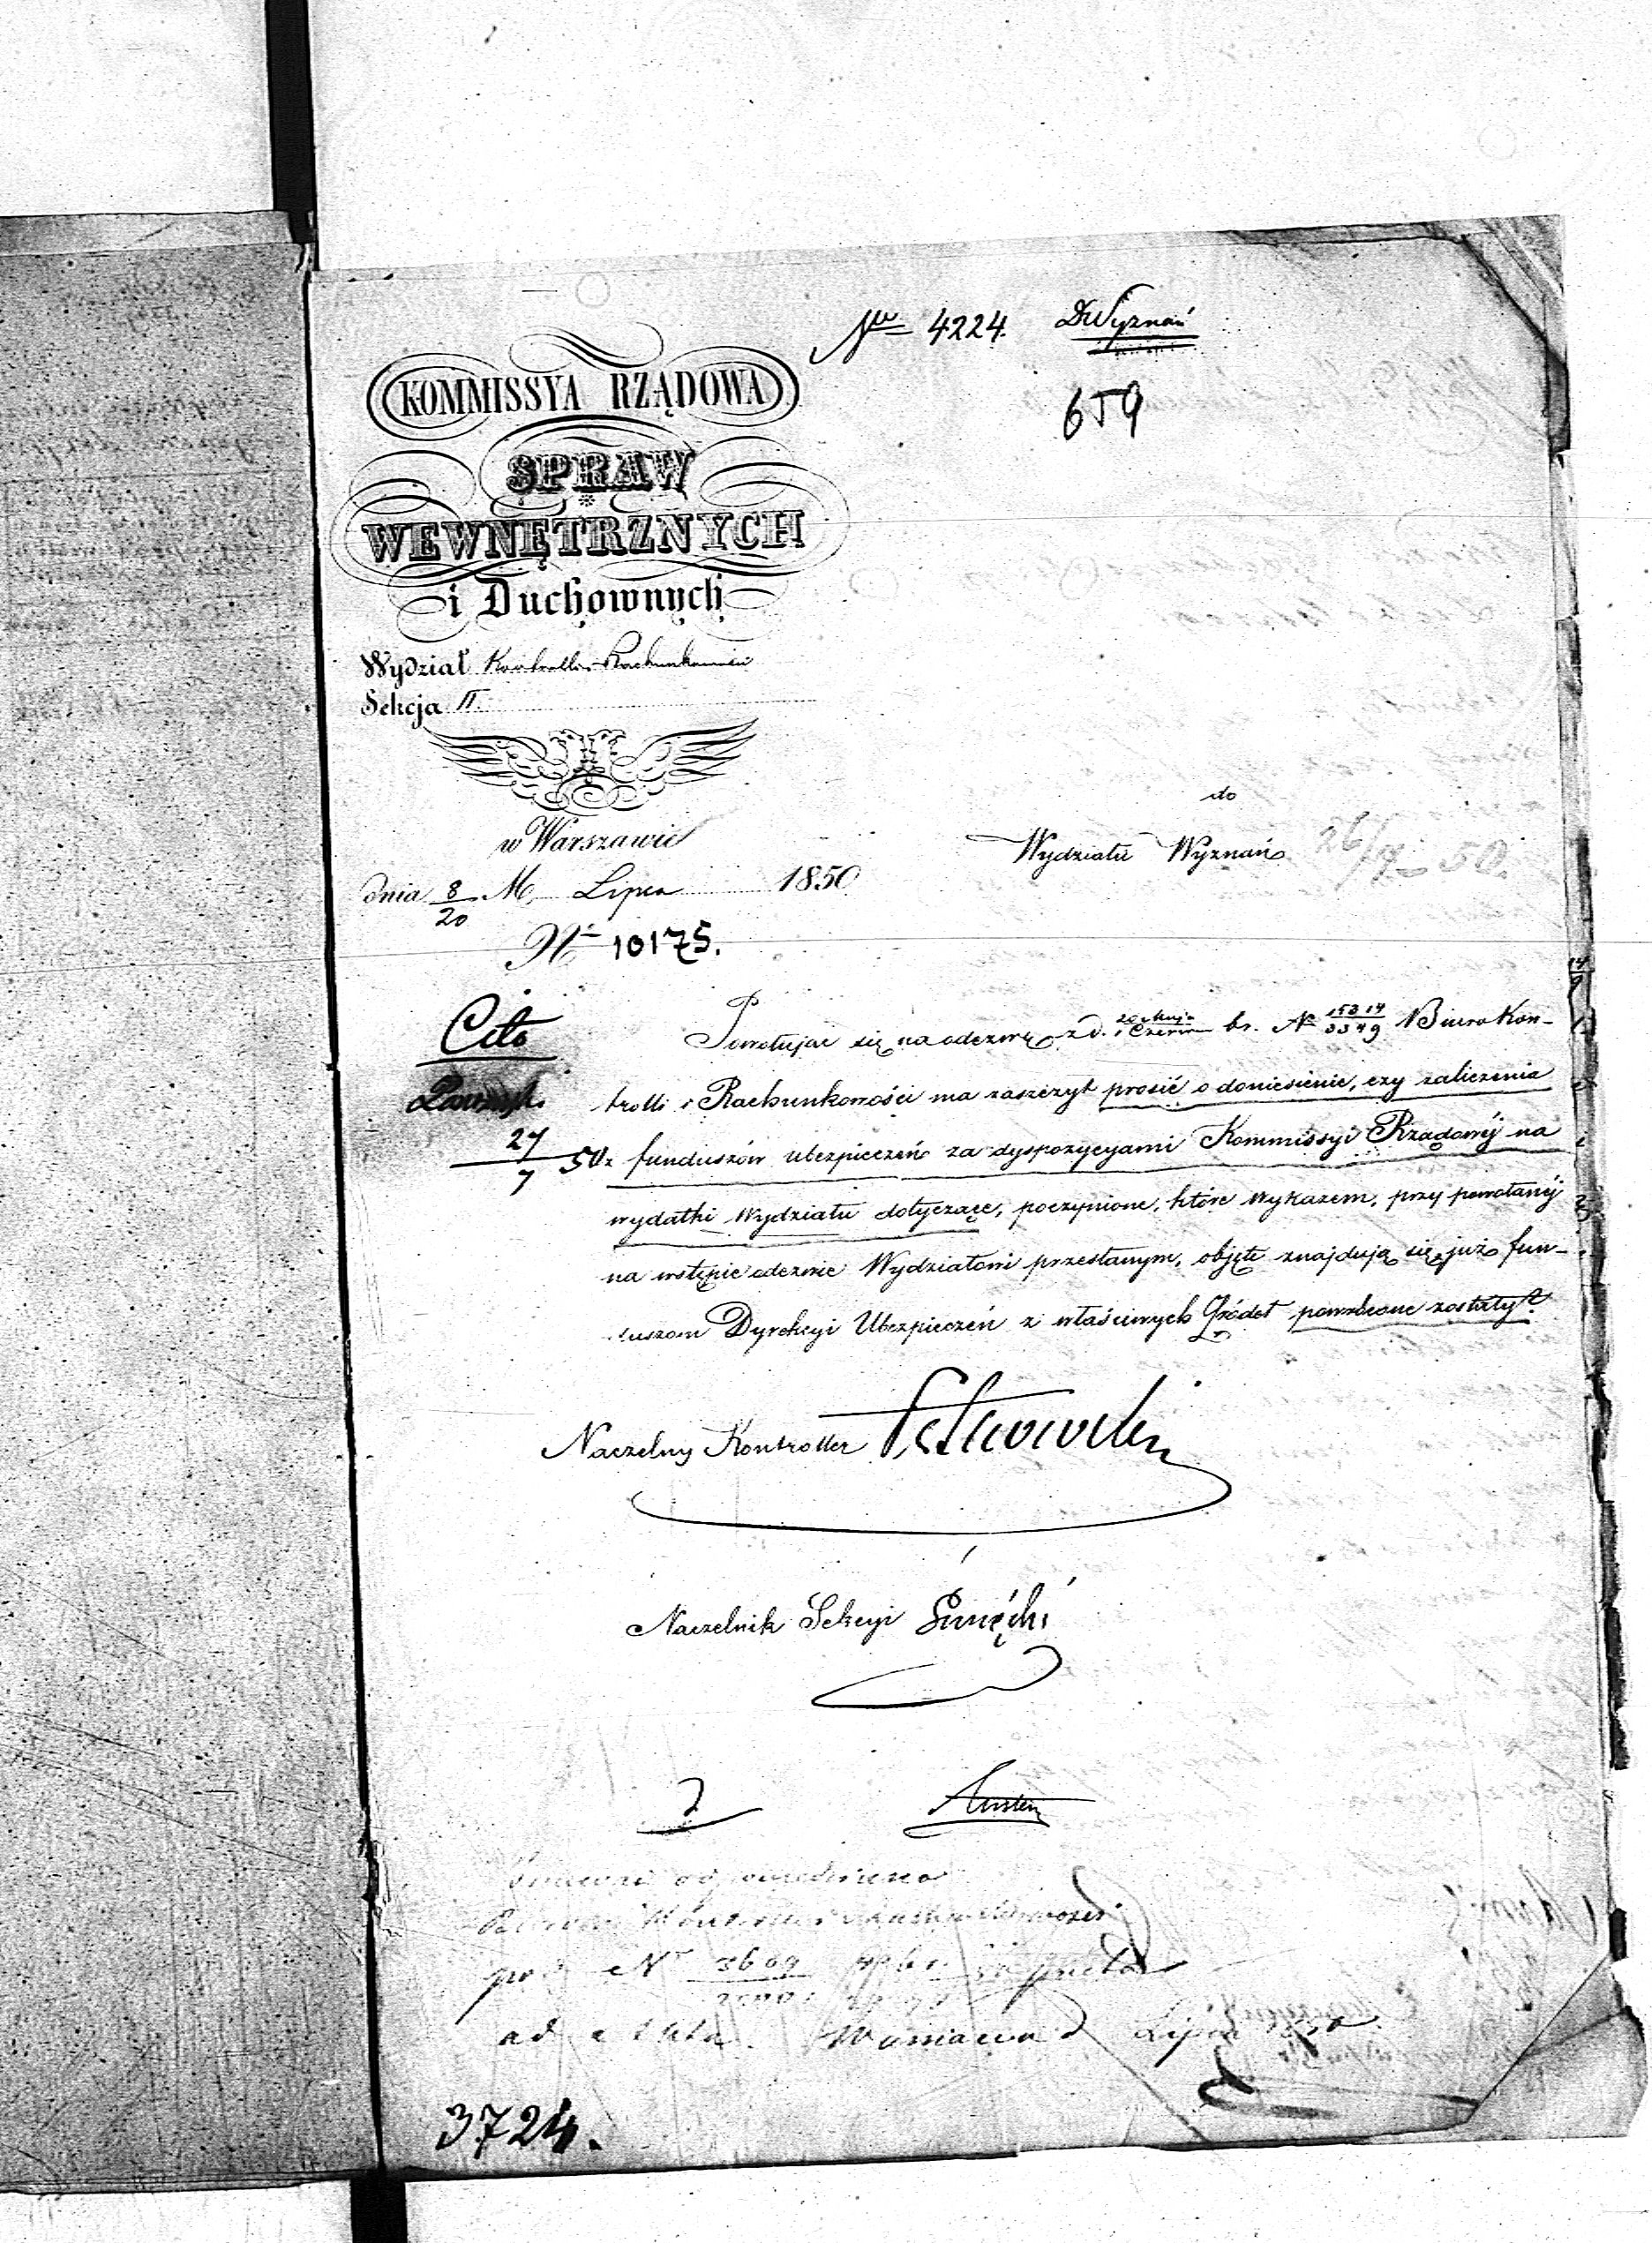 Nr 4224. DWyznań
659
KOMMISSYA RZĄDOWA
SPRAW
WEWNĘTRZNYCH
i Duchownych
Wydział Kontrolli i Rachunkowości
Sekcja II.
w Warszawie
do
Wydziału Wyznań 26/7 50.
dnia 8/20 M. Lipca 1850
N. 10175.
Cito
Powołując się na odezwę z d. 20 Maja/1 Czerwca br. No 15314/3349 Biuro Kon-
trolli i Rachunkowości ma zaszczyt prosić o doniesienie, czy zaliczenia
27/7 50 z funduszów ubezpieczeń za dyspozycyami Kommissyi Rządowéj na
wydatki Wydziału dotyczące, poczynione, które wykazem, przy powołanéj
na wstępie odezwie Wydziałowi przesłanym, objęte znajdują się, już fun-
duszom Dyrekcyi Ubezpieczeń z właściwych źródeł powrócone zostały?
Naczelny Kontroller
Naczelnik Sekcyi
pod Nr 3609
ad acta. Warszawa d Lipca 1850
3724.